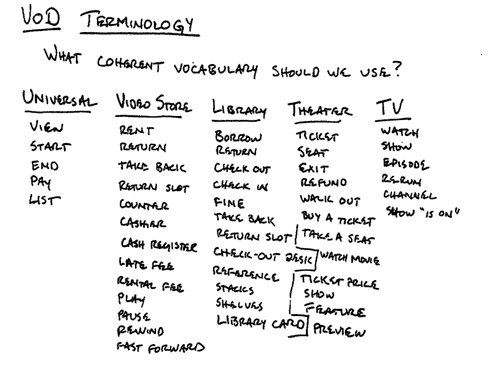 VOD TERMINOLOGY
WHAT COHERENT VOCABULARY SHOULD WE USE?
UNIVERSAL
VIEW
START
END
PAY
LIST
VIDEO STORE
RENT
RETURN
TAKE BACK
RETURN SLOT
COUNTER
CASHIER
CASH REGISTER
LATE FEE
RENTAL FEE
PLAY
PAUSE
REWIND
FAST FORWARD
LIBRARY
BORROW
RETURN
CHECK OUT
CHECK IN
FINE
TAKE BACK
RETURN SLOT
CHECK-OUT DESK
REFERENCE
STACKS
SHELVES
LIBRARY CARD
THEATER
TICKET
SEAT
EXIT
REFUND
WALK OUT
BUY A TICKET
TAKE A SEAT
WATCH MOVIE
TICKET PRICE
SHOW
FEATURE
PREVIEW
TV
WATCH
SHOW
EPISODE
RERUN
CHANNEL
SHOW "IS ON"